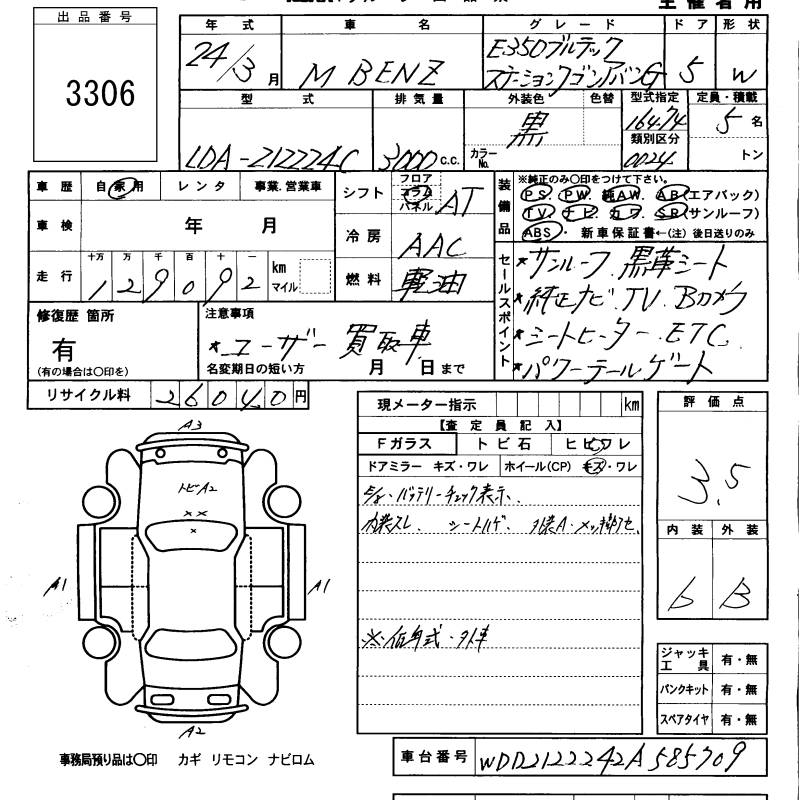 主催者用
出品番号
3306
年式 車名 グレード ドア 形状
24/3月 M BENZ E350ブルテック
ステーションワゴンアバンG 5 W
型式 排気量 外装色 色替 型式指定 定員・積載
LDA-212224C 3000 c.c. 黒 カラーNo. 16474 5名
類別区分
0024 トン
車歴 自家用 レンタ 事業.営業車
車検 年 月
走行 十万 万 千 百 十 一 km マイル
129092
シフト フロア コラム パネル AT
冷房 AAC
燃料 軽油
装備品 ※純正のみ〇印をつけて下さい。
PS. PW. 純AW. AB(エアバック)
TV. ナビ. カワ. SR(サンルーフ)
ABS. 新車保証書←(注) 後日送りのみ
セールスポイント
*サンルーフ.黒革シート
*純正ナビ.TV.Bカメラ
*シートヒーター.ETC.
*パワーテールゲート
修復歴 箇所
有
(有の場合は〇印を)
注意事項
*ユーザー買取車
名変期日の短い方 月 日まで
リサイクル料 26040円
現メーター指示 km
【査定員記入】
Fガラス トビ石 ヒビワレ
ドアミラー キズ・ワレ ホイール(CP) キズ・ワレ
バッテリーチェック表示.
内装スレ. シートハゲ. 外装A・メッキ
評価点
3.5
内装 外装
b B
A3
トビA2
××
×
A1
A1
A2
ジャッキ工具 有・無
パンクキット 有・無
スペアタイヤ 有・無
事務局預り品は〇印 カギ リモコン ナビロム
車台番号 WDD2122242A585709